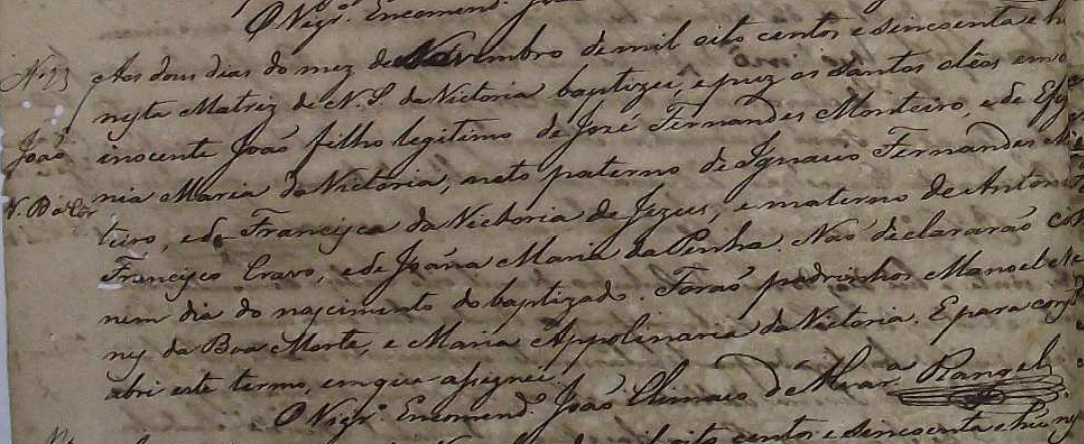 O Vigr.º Encomend.
N.º 23
Aos dous dias do mez de Novembro de mil oito centos e sincoenta e h
nesta Matriz de N. S. da Victoria baptizei, e puz os Santos oleos em o
João
inocente João filho legitimo de José Fernandes Monteiro, e de Efig
nia Maria da Victoria, neto paterno de Ignacio Fernandes M
teiro, e de Francisca da Victoria de Jezus, e materno de Anton
Francisco Cravo, e de Joana Maria da Penha. Não declararão
nem dia do nascimento do baptizado. Forão padrinhos Manoel
da Boa Morte, e Maria Appolinaria da Victoria. E para
abri este termo, em que assignei.
O Vigr.º Encomend.º João Climaco d'Alvar.ª Rangel
oito centos e sincoenta e hú